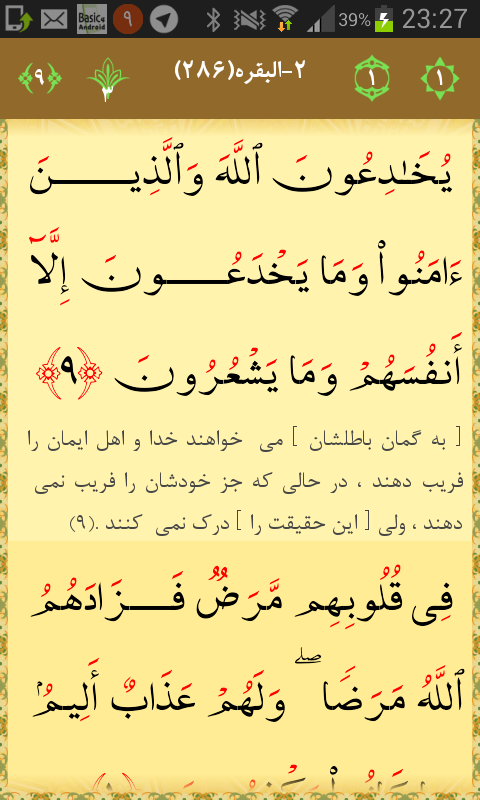 Basic4 Android ۹ 39% 23:27
﴿۹﴾ ۳ ۲-البقره(۲۸۶) ۱ ۱
يُخَـٰدِعُونَ ٱللَّهَ وَٱلَّذِيـــــنَ
ءَامَنُوا۟ وَمَا يَخْدَعُـــــونَ إِلَّآ
أَنفُسَهُمْ وَمَا يَشْعُرُونَ ﴿۹﴾
[ به گمان باطلشان ] می خواهند خدا و اهل ایمان را
فریب دهند ، در حالی که جز خودشان را فریب نمی
دهند ، ولی [ این حقیقت را ] درک نمی کنند .(۹)
فِى قُلُوبِهِم مَّرَضٌ فَـــزَادَهُمُ
ٱللَّهُ مَرَضًا ۖ وَلَهُمْ عَذَابٌ أَلِيمٌۢ